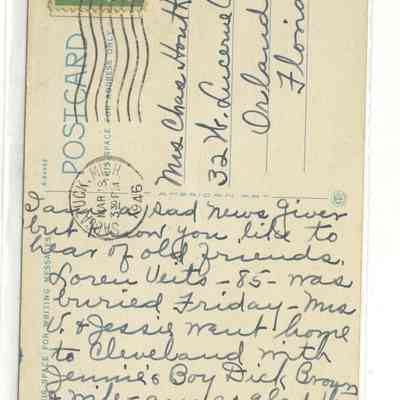 POSTCARD
THIS SPACE FOR ADDRESS ONLY
Mrs Chas
32 W. Lucerne C
Orland
Florid
MAR 8
330 PM
1946
AMERICAN ART
THIS SPACE FOR WRITING MESSAGES
I am a sad news giver
but know you like to
hear of old friends.
Loren Veits - 85 - was
buried Friday - Mrs
V. & Jessie went home
to Cleveland with
Jennie's Boy Dick Brown